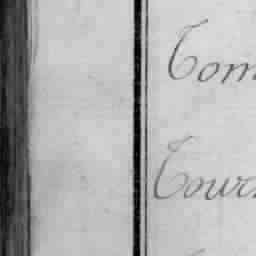 Tom
Tour